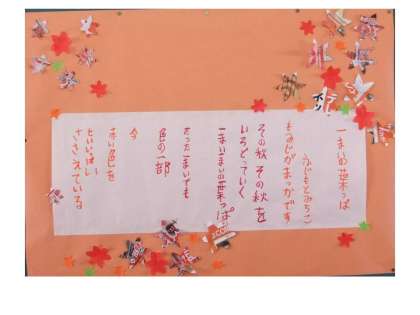 一まいの葉っぱ
ふじもとみちこ
もみじがまっかです
その秋その秋を
いろどっていく
一まい一まいの葉っぱ
たった一まいでも
色の一部
今
赤い色を
せいいっぱい
ささえている